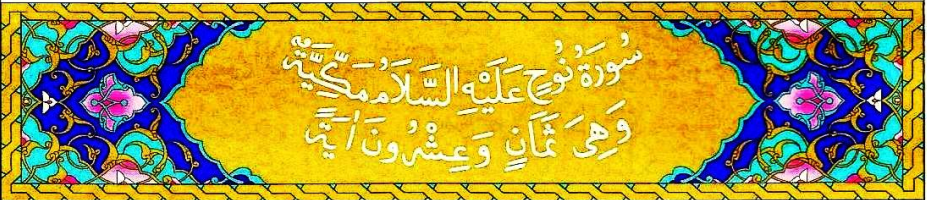 سُورَةُ نُوحٍ عَلَيْهِ السَّلَامُ مَكِّيَّةٌ
وَهِىَ ثَمَانٍ وَعِشْرُونَ اٰيَةً